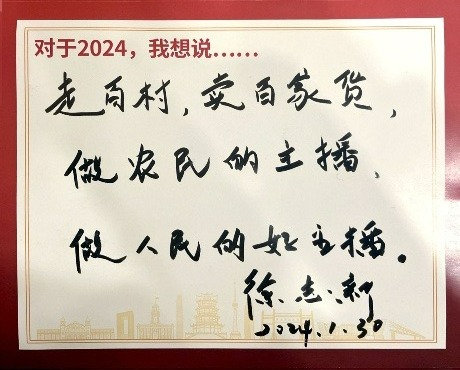 对于2024，我想说……
走百村，卖百家货，
做农民的主播、
做人民的好主播。
徐志新
2024.1.30